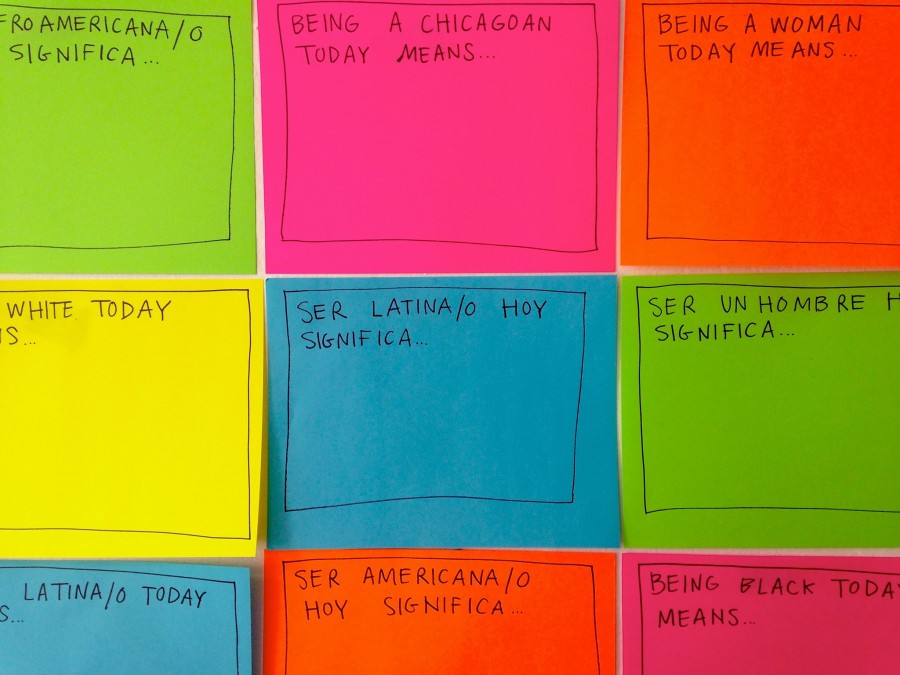 FROAMERICANA/O
SIGNIFICA...
BEING A CHICAGOAN
TODAY MEANS...
BEING A WOMAN
TODAY MEANS...
WHITE TODAY
NS...
SER LATINA/O HOY
SIGNIFICA...
SER UN HOMBRE H
SIGNIFICA...
LATINA/O TODAY
S...
SER AMERICANA/O
HOY SIGNIFICA...
BEING BLACK TODAY
MEANS...